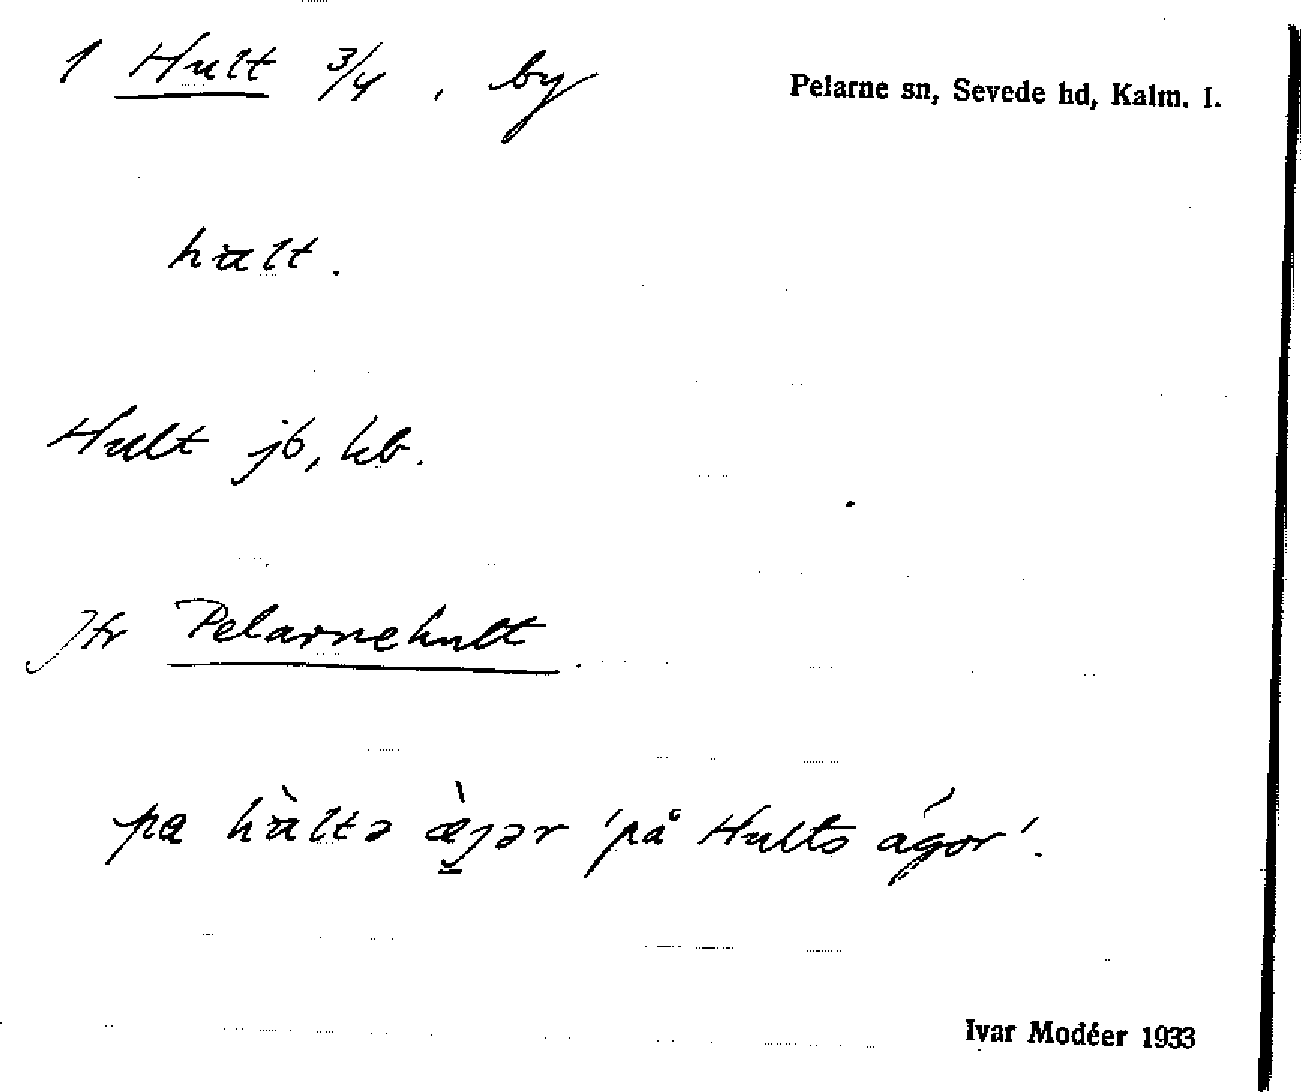 1 Hult 3/4, by
Pelarne sn, Sevede hd, Kalm. l.
hult.
Hult jb, kb.
Jfr Pelarnehult.
pa hùltə æ̀gər 'på Hults ägor'.
Ivar Modéer 1933